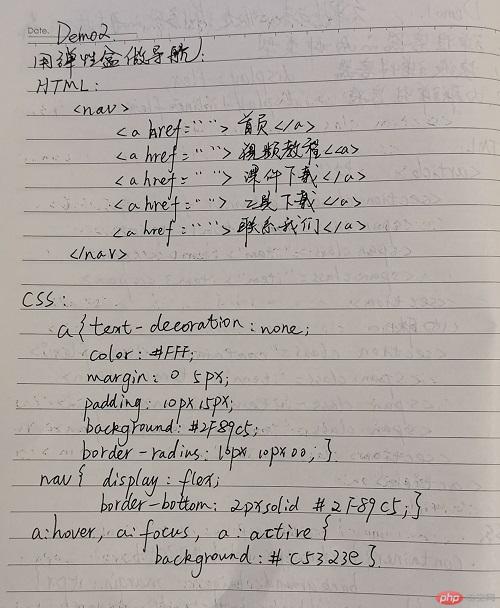 Date.
Demo2.
(用弹性盒做导航):
HTML:
<nav>
<a href="">首页</a>
<a href="">视频教程<a>
<a href="">课件下载</a>
<a href="">工具下载</a>
<a href="">联系我们</a>
</nav>
CSS:
a{text-decoration:none;
color:#FFF;
margin:0 5px;
padding:10px 15px;
background:#2F89c5;
border-radius:10px 10px 0 0;}
nav{ display:flex;
border-bottom: 2px solid #2F89c5;}
a:hover, a:focus, a:active{
background:#c5323e}
php